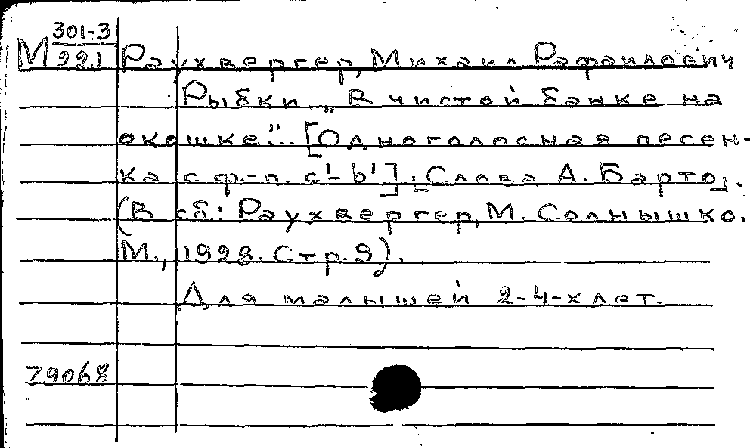 М 301-3/221 Раухвергер, Михаил Рафаилович
Рыбки. „В чистой банке на
окошке"... [Одноголосная песен-
ка с ф-п. c'-b']. Слова А. Барто.
(В сб.: Раухвергер, М. Солнышко.
М., 1928. Стр. 9).
Для малышей 2-4-х лет.
79068